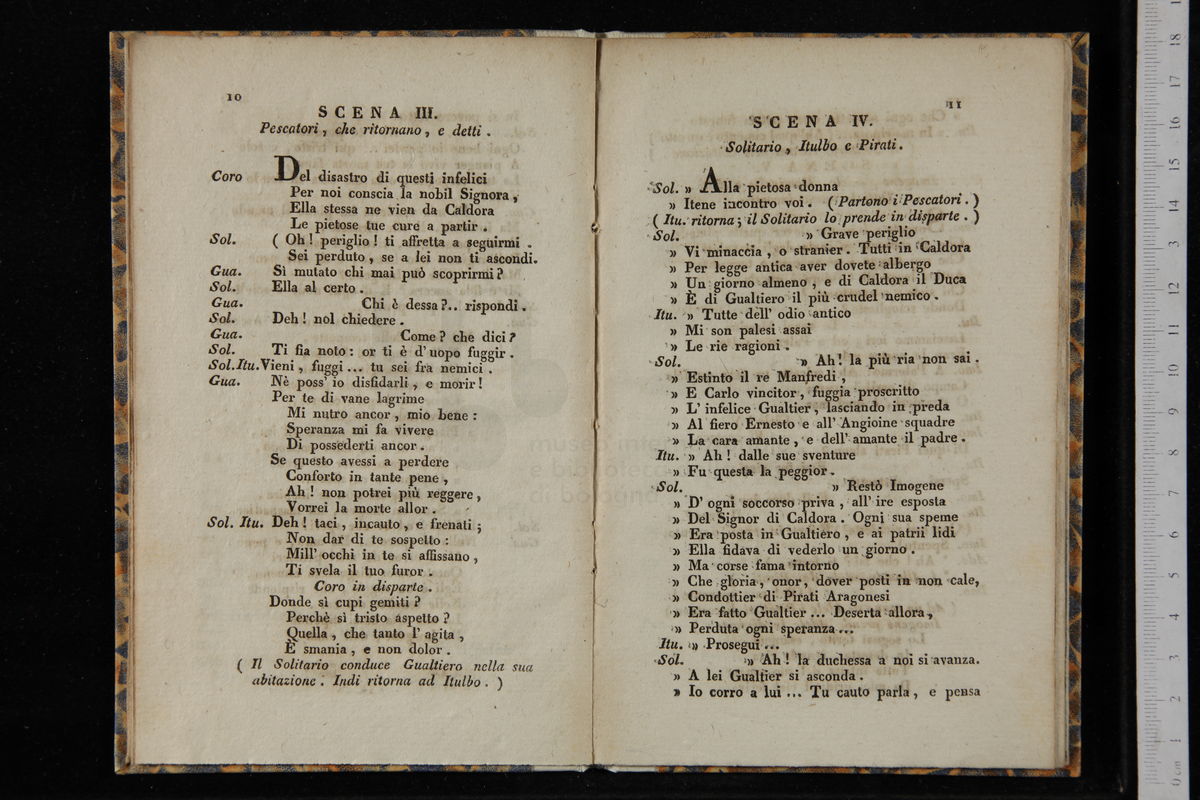 10
SCENA III.
Pescatori, che ritornano, e detti.
Coro Del disastro di questi infelici
Per noi conscia la nobil Signora,
Ella stessa ne vien da Caldora
Le pietose tue cure a partir.
Sol. ( Oh! periglio! ti affretta a seguirmi.
Sei perduto, se a lei non ti ascondi.
Gua. Sì mutato chi mai può scoprirmi?
Sol. Ella al certo.
Gua. Chi è dessa?.. rispondi.
Sol. Deh! nol chiedere.
Gua. Come? che dici?
Sol. Ti fia noto: or ti è d'uopo fuggir.
Sol. Itu. Vieni, fuggi... tu sei fra nemici.
Gua. Nè poss' io disfidarli, e morir!
Per te di vane lagrime
Mi nutro ancor, mio bene:
Speranza mi fa vivere
Di possederti ancor.
Se questo avessi a perdere
Conforto in tante pene,
Ah! non potrei più reggere,
Vorrei la morte allor.
Sol. Itu. Deh! taci, incauto, e frenati;
Non dar di te sospetto:
Mill' occhi in te si affissano,
Ti svela il tuo furor.
Coro in disparte.
Donde sì cupi gemiti?
Perchè sì tristo aspetto?
Quella, che tanto l' agita,
È smania, e non dolor.
( Il Solitario conduce Gualtiero nella sua
abitazione. Indi ritorna ad Itulbo. )
11
SCENA IV.
Solitario, Itulbo e Pirati.
Sol. » Alla pietosa donna
» Itene incontro voi. ( Partono i Pescatori. )
( Itu. ritorna; il Solitario lo prende in disparte. )
Sol. » Grave periglio
» Vi minaccia, o stranier. Tutti in Caldora
» Per legge antica aver dovete albergo
» Un giorno almeno, e di Caldora il Duca
» È di Gualtiero il più crudel nemico.
Itu. » Tutte dell' odio antico
» Mi son palesi assai
» Le rie ragioni.
Sol. » Ah! la più ria non sai.
» Estinto il re Manfredi,
» E Carlo vincitor, fuggia proscritto
» L' infelice Gualtier, lasciando in preda
» Al fiero Ernesto e all' Angioine squadre
» La cara amante, e dell' amante il padre.
Itu. » Ah! dalle sue sventure
» Fu questa la peggior.
Sol. » Restò Imogene
» D' ogni soccorso priva, all' ire esposta
» Del Signor di Caldora. Ogni sua speme
» Era posta in Gualtiero, e ai patrii lidi
» Ella fidava di vederlo un giorno.
» Ma corse fama intorno
» Che gloria, onor, dover posti in non cale,
» Condottier di Pirati Aragonesi
» Era fatto Gualtier... Deserta allora,
» Perduta ogni speranza...
Itu. » Prosegui...
Sol. » Ah! la duchessa a noi si avanza.
» A lei Gualtier si asconda.
» Io corro a lui... Tu cauto parla, e pensa